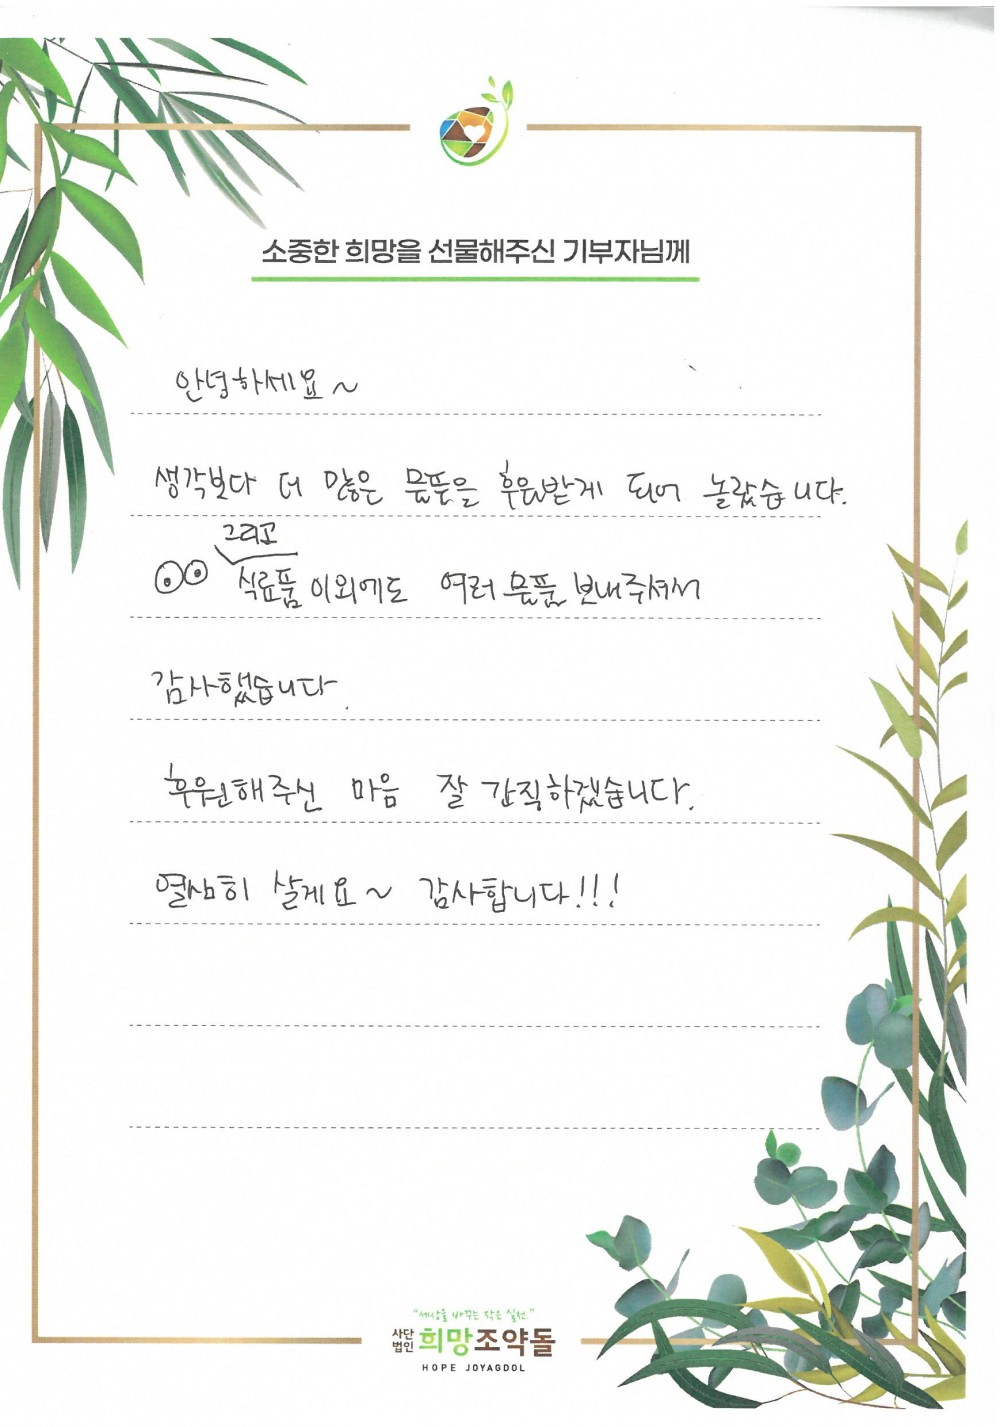 소중한 희망을 선물해주신 기부자님께
안녕하세요~
생각보다 더 많은 물품을 후원받게 되어 놀랐습니다.
그리고
식료품 이외에도 여러 물품 보내주셔서
감사했습니다.
후원해주신 마음 잘 간직하겠습니다.
열심히 살게요~ 감사합니다!!!
"세상을 바꾸는 작은 실천"
사단법인 희망조약돌
HOPE JOYAGDOL